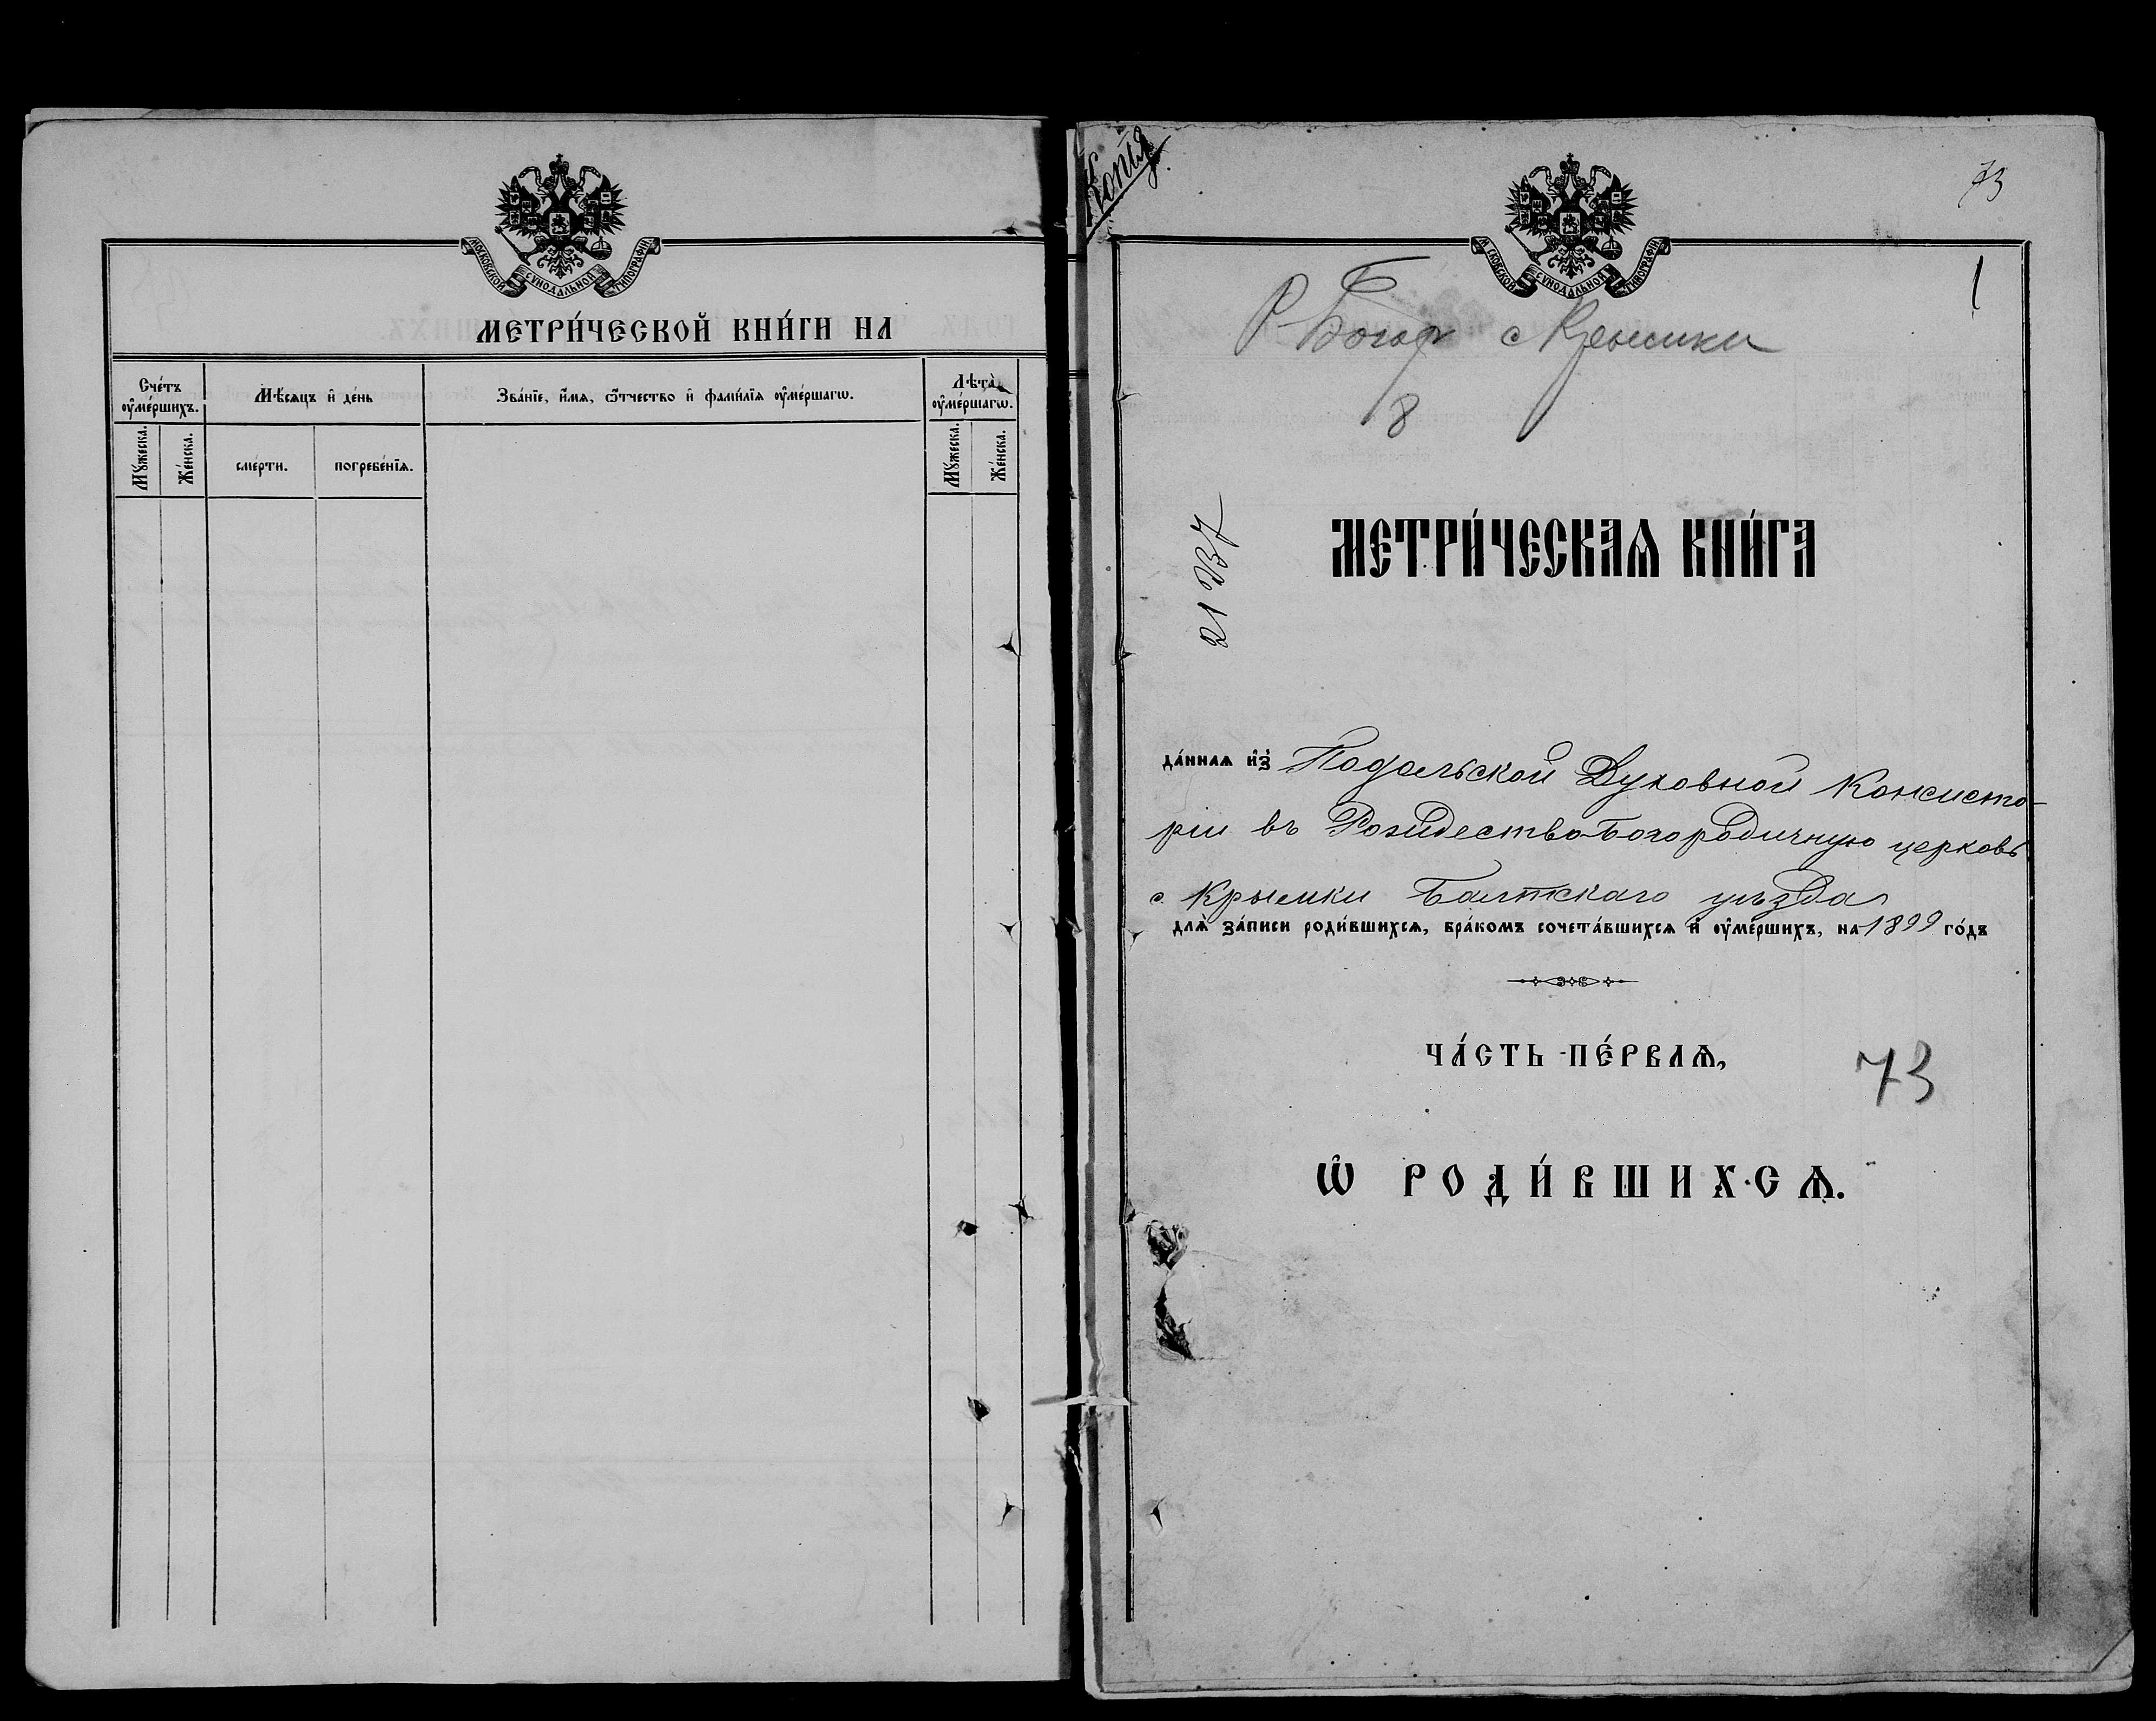 МОСКОВСКОЙ СУНОДАЛЬНОЙ ТИПОГРАФІИ
МЕТРИ́ЧЕСКОЙ КНИ́ГИ НА
Сче́тъ оу҆ме́ршихъ.
Мѣ́сяцъ и҆ де́нь
Зва́нїе, и҆́мѧ, ѻ҆́тчество и҆ фами́лїѧ оу҆ме́ршагѡ.
Лѣта̀ оу҆ме́ршагѡ.
Мꙋ́жеска.
Же́нска.
сме́рти.
погребе́нїѧ.
Мꙋ́жеска.
Же́нска.
Копія
73
МОСКОВСКОЙ СУНОДАЛЬНОЙ ТИПОГРАФІИ
1
Р Богор с Крымки
8
МЕТРИ́ЧЕСКАѦ КНИ́ГА
да́ннаѧ и҆з̾ Подольской Духовной Консисто-
ріи въ Рождество-Богородичную церковь
с. Крымки Балтскаго уѣзда
длѧ̀ за́писи роди́вшихсѧ, бра́комъ сочета́вшихсѧ и҆ оу҆ме́ршихъ, на 1899 го́дъ
ЧА́СТЬ ПЕ́РВАѦ,
73
Ѡ҆ РОДИ́ВШИХСѦ.